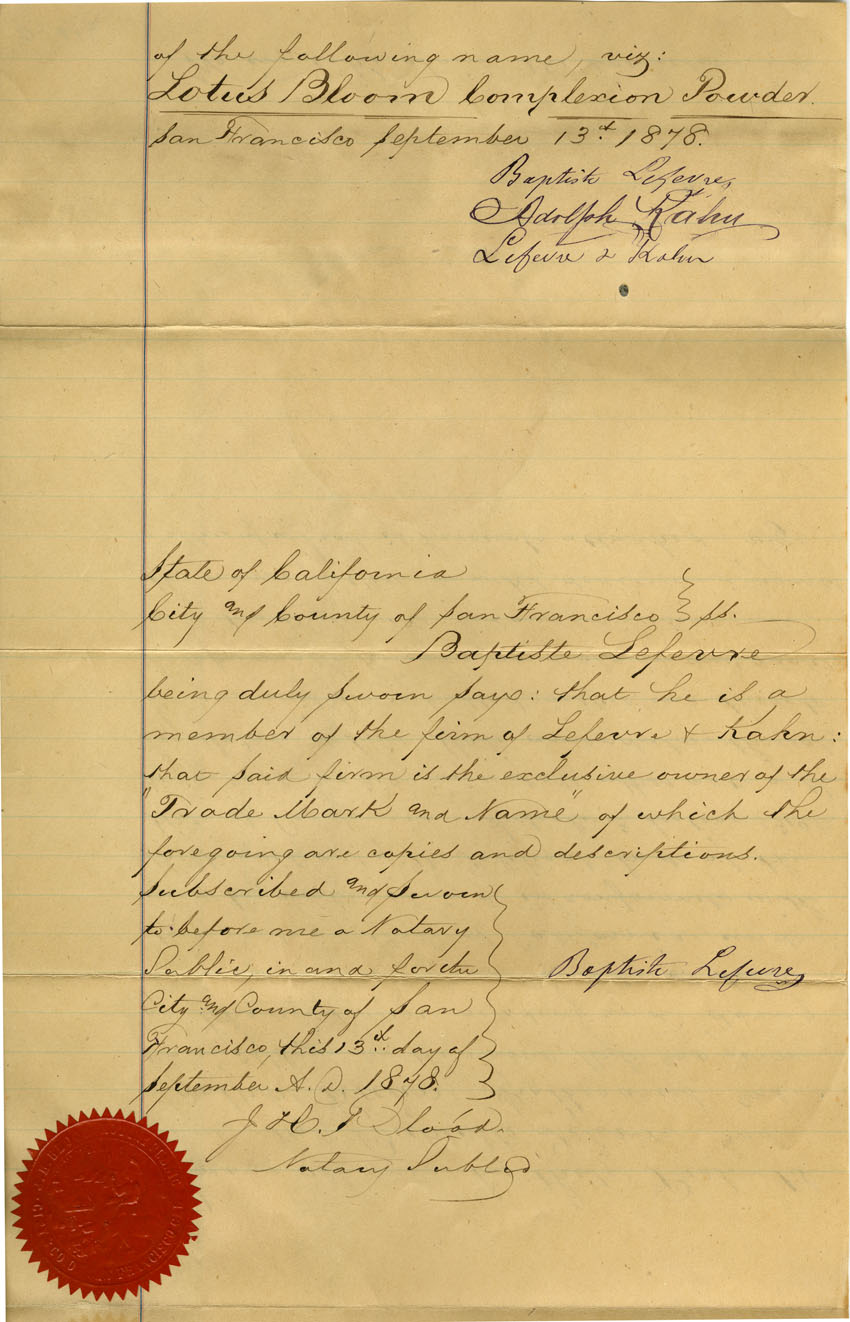 of the following name, viz:
Lotus Bloom Complexion Powder.
San Francisco September 13th 1878.
Baptiste Lefevre
Adolph Kahn
Lefevre & Kahn
State of California
City and County of San Francisco } ss.
Baptiste Lefevre
being duly sworn says: that he is a
member of the firm of Lefevre & Kahn:
that said firm is the exclusive owner of the
"Trade Mark and Name" of which the
foregoing are copies and descriptions.
Subscribed and Sworn
to before me a Notary
Public, in and for the
City and County of San
Francisco, this 13th day of
September A. D. 1878.
Baptiste Lefevre
Notary Public